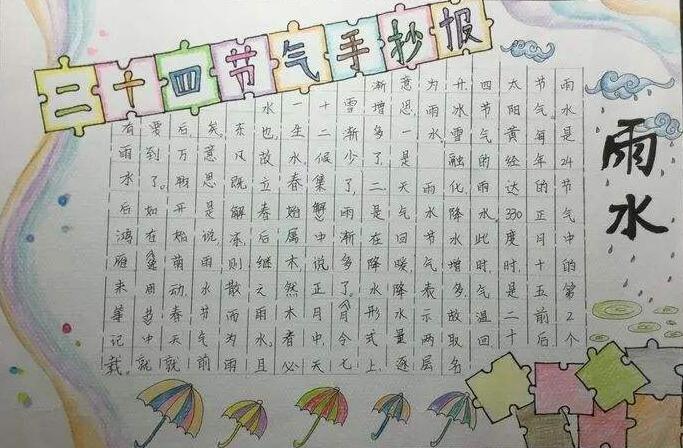 二十四节气手抄报
雨水
雨水是24节气中的第2个
节气。每年的正月十五前后
太阳黄经达330度时,是二十
四节气的雨水。此时,气温回
升、冰雪融化、降水增多,故取名
为雨水。雨水节气表示两层
意思,一是天气回暖,降水量逐
渐增多了,二是在降水形式上,
雪渐少了,雨渐多了。《月令七
十二候集解》中说:正月中,天
一生水。春始属木,然木者必
水也,故立春后继之雨水。且
东风既解冻,则散而为雨
矣。意思是说,雨水节气前
后,万物开始萌动,春天就
要到了。如在《周书》中就
有雨水后鸿雁来等记载。